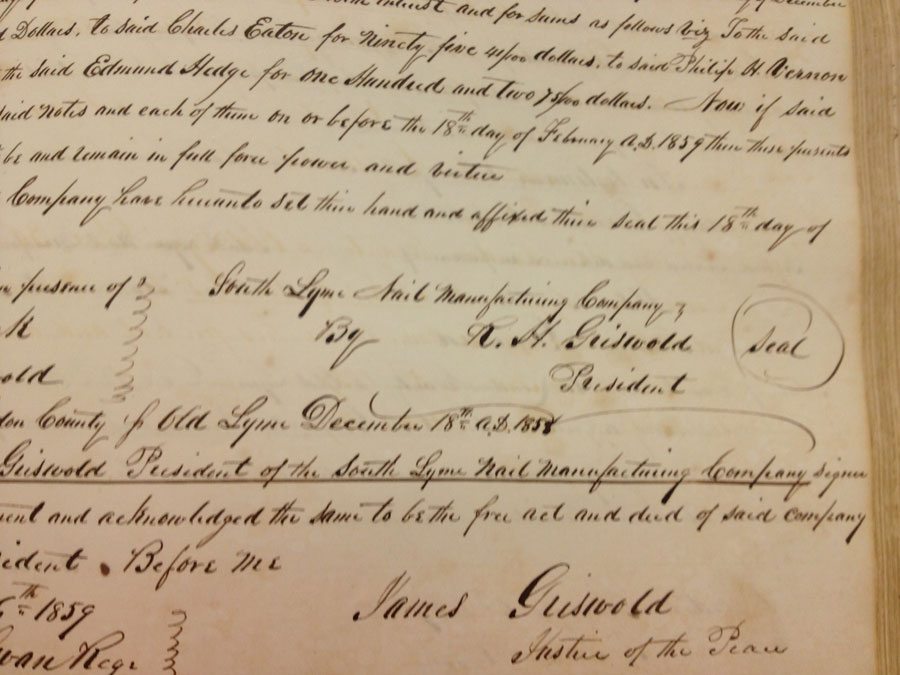 interest and for sums as follows viz To the said
Dollars, to said Charles Eaton for Ninety five 41/100 dollars, to said Philip H. Vernon
the said Edmund Hedge for One Hundred and two 75/100 dollars. Now if said
said notes and each of them on or before the 18th day of February A.D. 1859 then these presents
be and remain in full force power and virtue
Company have hereunto set their hand and affixed their seal this 18th day of
presence of South Lyme Nail Manufacturing Company
By R. H. Griswold Seal
President
County Old Lyme December 18th A.D. 1858
Griswold President of the South Lyme Nail Manufacturing Company signer
and acknowledged the same to be the free act and deed of said company
Before Me
1859 James Griswold
Justice of the Peace